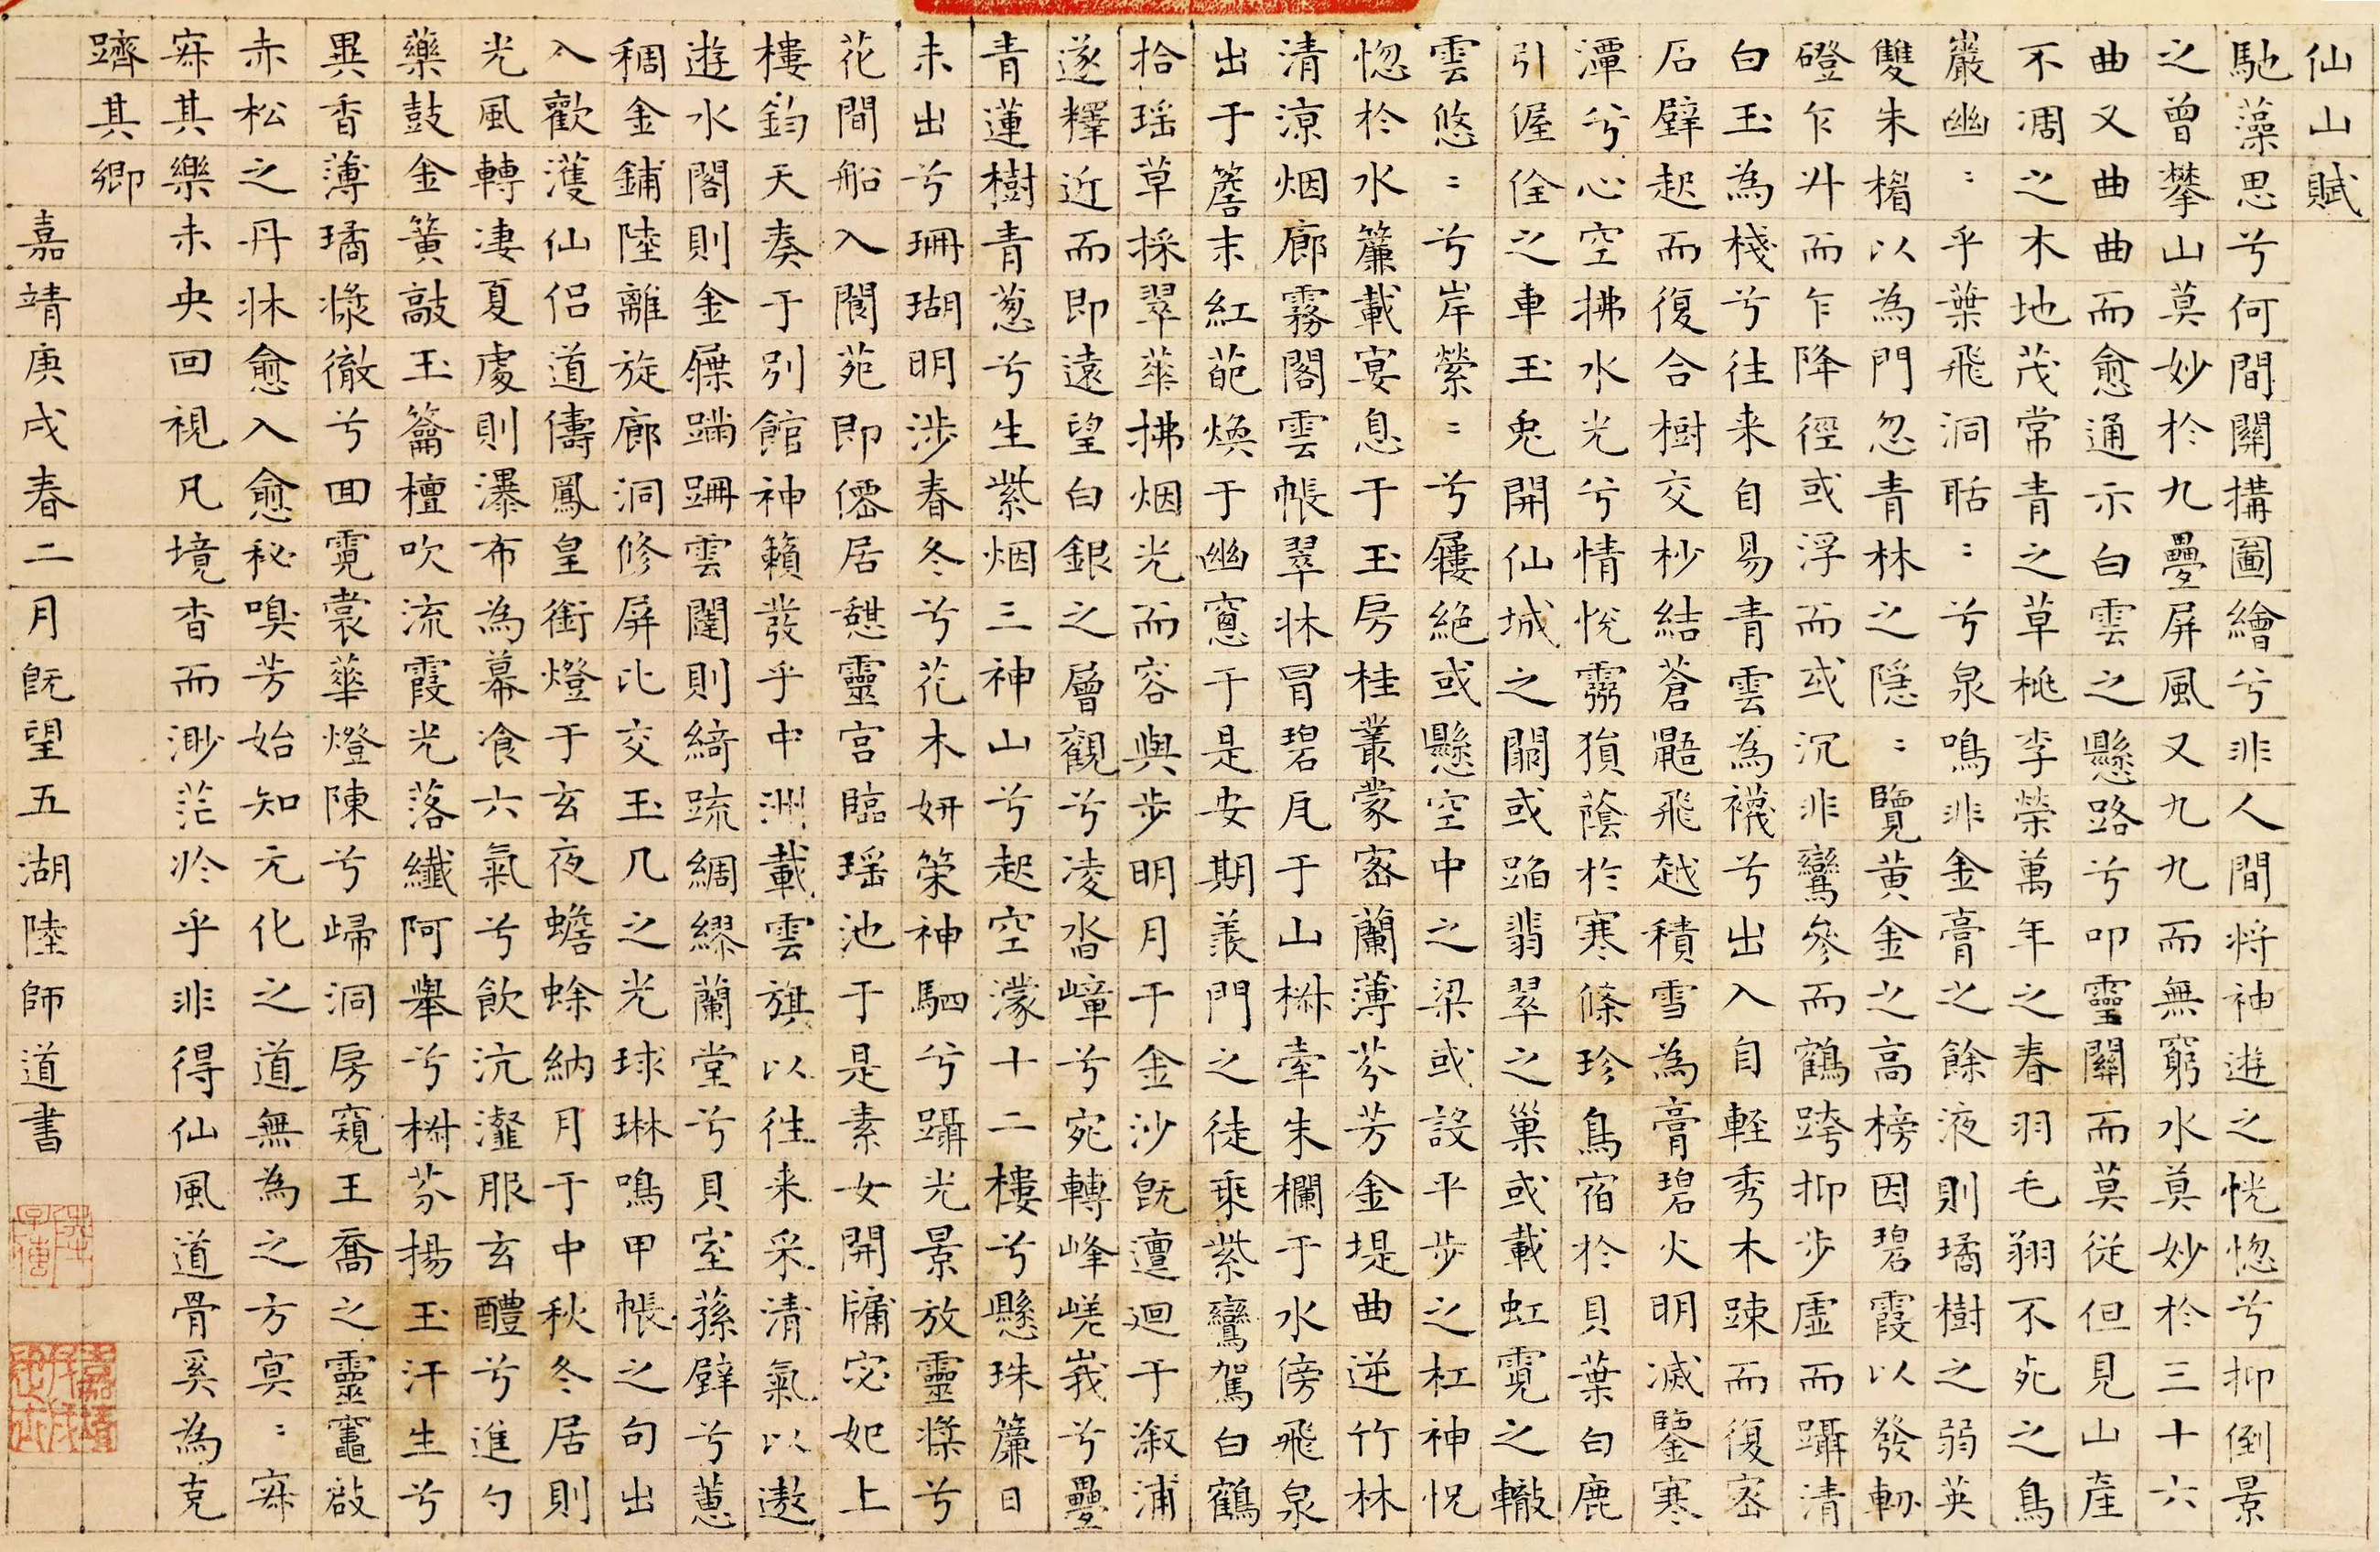 仙山賦
馳藻思兮何間關搆圖繪兮非人間將神遊之恍惚兮抑倒景
之曾攀山莫妙於九疊屏風又九九而無窮水莫妙於三十六
曲又曲曲而愈通示白雲之懸路兮叩靈關而莫從但見山產
不凋之木地茂常青之草桃李榮萬年之春羽毛翔不死之鳥
巖幽〻乎葉飛洞聒〻兮泉鳴非金膏之餘液則璚樹之弱英
雙朱楣以為門忽青林之隱〻覽黃金之高榜因碧霞以發軔
磴乍升而乍降徑或浮而或沉非鸞參而鶴跨抑步虛而躡清
白玉為棧兮往来自易青雲為襪兮出入自輕秀木踈而復密
石壁起而復合樹交杪結蒼鼯飛越積雪為膏碧火明滅鑒寒
潭兮心空拂水光兮情悅霧㺊蔭於寒條珍鳥宿於貝葉白鹿
引偓佺之車玉兎開仙城之關或蹈翡翠之巢或載虹霓之轍
雲悠〻兮岸縈〻兮屨絕或懸空中之梁或設平步之杠神怳
惚於水簾載宴息于玉房桂叢蒙密蘭薄芬芳金堤曲逆竹林
清涼烟廊霧閣雲帳翠牀冒碧瓦于山椒牽朱欄于水傍飛泉
出于簷末紅葩煥于幽窻于是安期羨門之徒乘紫鸞駕白鶴
拾瑶草採翠蕐拂烟光而容與步明月于金沙既邅迴于溆浦
遂釋近而即遠望白銀之層觀兮凌沓嶂兮宛轉峰嵯峩兮疊
青蓮樹青葱兮生紫烟三神山兮起空濛十二樓兮懸珠簾日
未出兮珊瑚明涉春冬兮花木妍榮神駟兮躡光景放靈槳兮
花間船入閬苑即僊居憇靈宮臨瑶池于是素女開牖宓妃上
樓鈞天奏于別館神籟發乎中洲載雲旗以往来采清氣以遨
遊水閣則金屧蹣跚雲闥則綺疏綢繆蘭堂兮貝室蓀壁兮蕙
稠金鋪陸離旋廊洞修屏比交玉几之光球琳鳴甲帳之句出
入歡濩仙侶道儔鳳皇銜燈于玄夜蟾蜍納月于中秋冬居則
光風轉淒夏處則瀑布為幕飡六氣兮飲沆瀣服玄醴兮進勺
藥鼓金簧敲玉籥檀吹流霞光落纖阿舉兮椒芬揚玉汗生兮
異香薄璚漿徹兮回霓裳蕐燈陳兮歸洞房窺王喬之靈竈啟
赤松之丹牀愈入愈秘嗅芳始知元化之道無為之方寞〻寐
寐其樂未央回視凡境杳而渺茫於乎非得仙風道骨奚為克
躋其鄉
嘉靖庚戌春二月既望五湖陸師道書